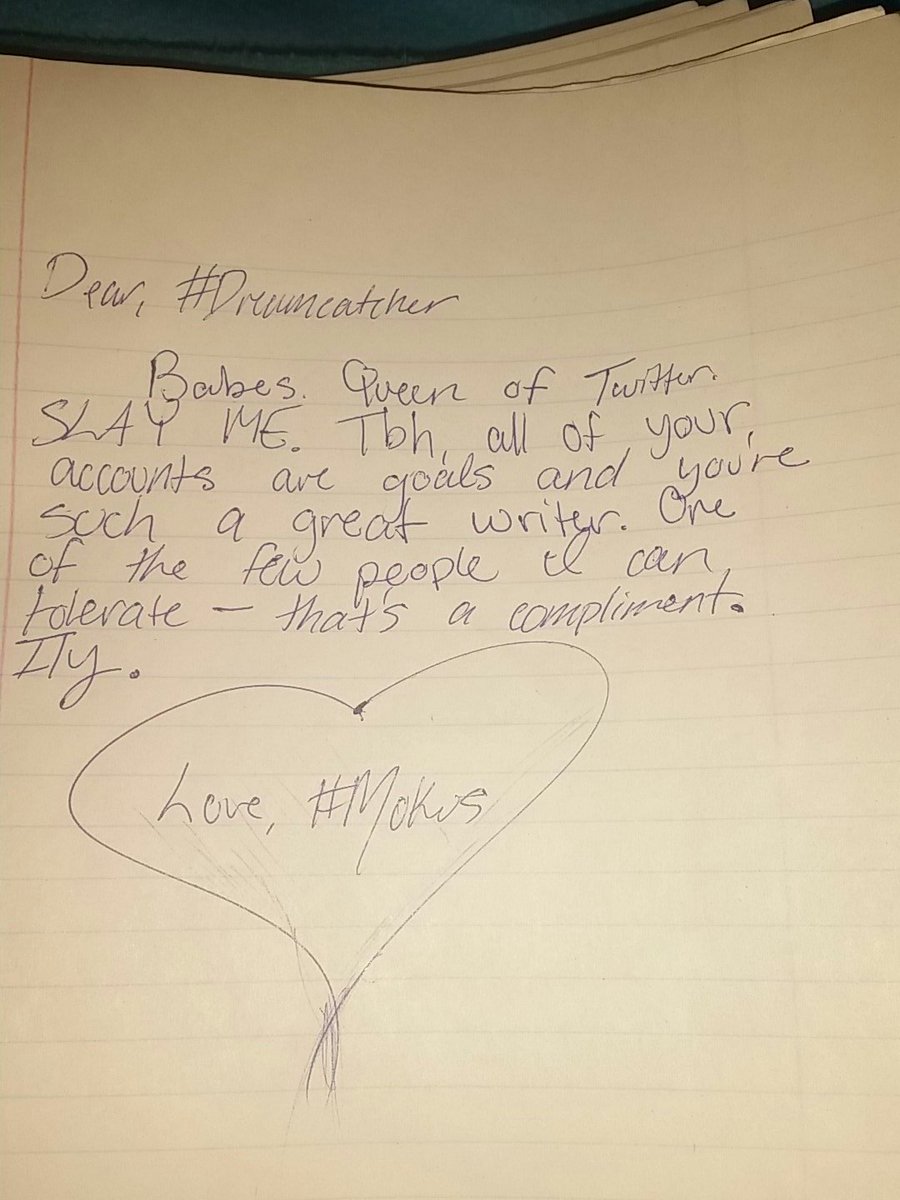 Dear, #Dreamcatcher
Babes. Queen of Twitter.
SLAY ME. Tbh, all of your,
accounts are goals and you're
such a great writer. One
of the few people I can
tolerate – that's a compliment.
Ily.
Love, #Mokus